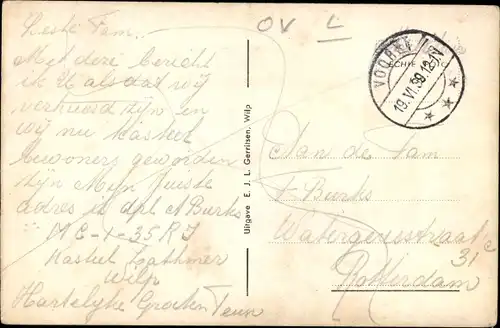 OV L
Beste Fam.
Met deze bericht
ik U als dat wij
verhuisd zijn en
wij nu kasteel
bewoners geworden
zijn Mijn juiste
adres is dpl A Burks
M C - 1 - 35 R J
Kasteel Lathmer
Wilp
Hartelijke Groeten Teun
Uitgave E. J. L. Gerritsen, Wilp
VOORST
19.VI.39.12-1V
Aan de Fam
Burks
Watergeusstraat
31 c
Rotterdam